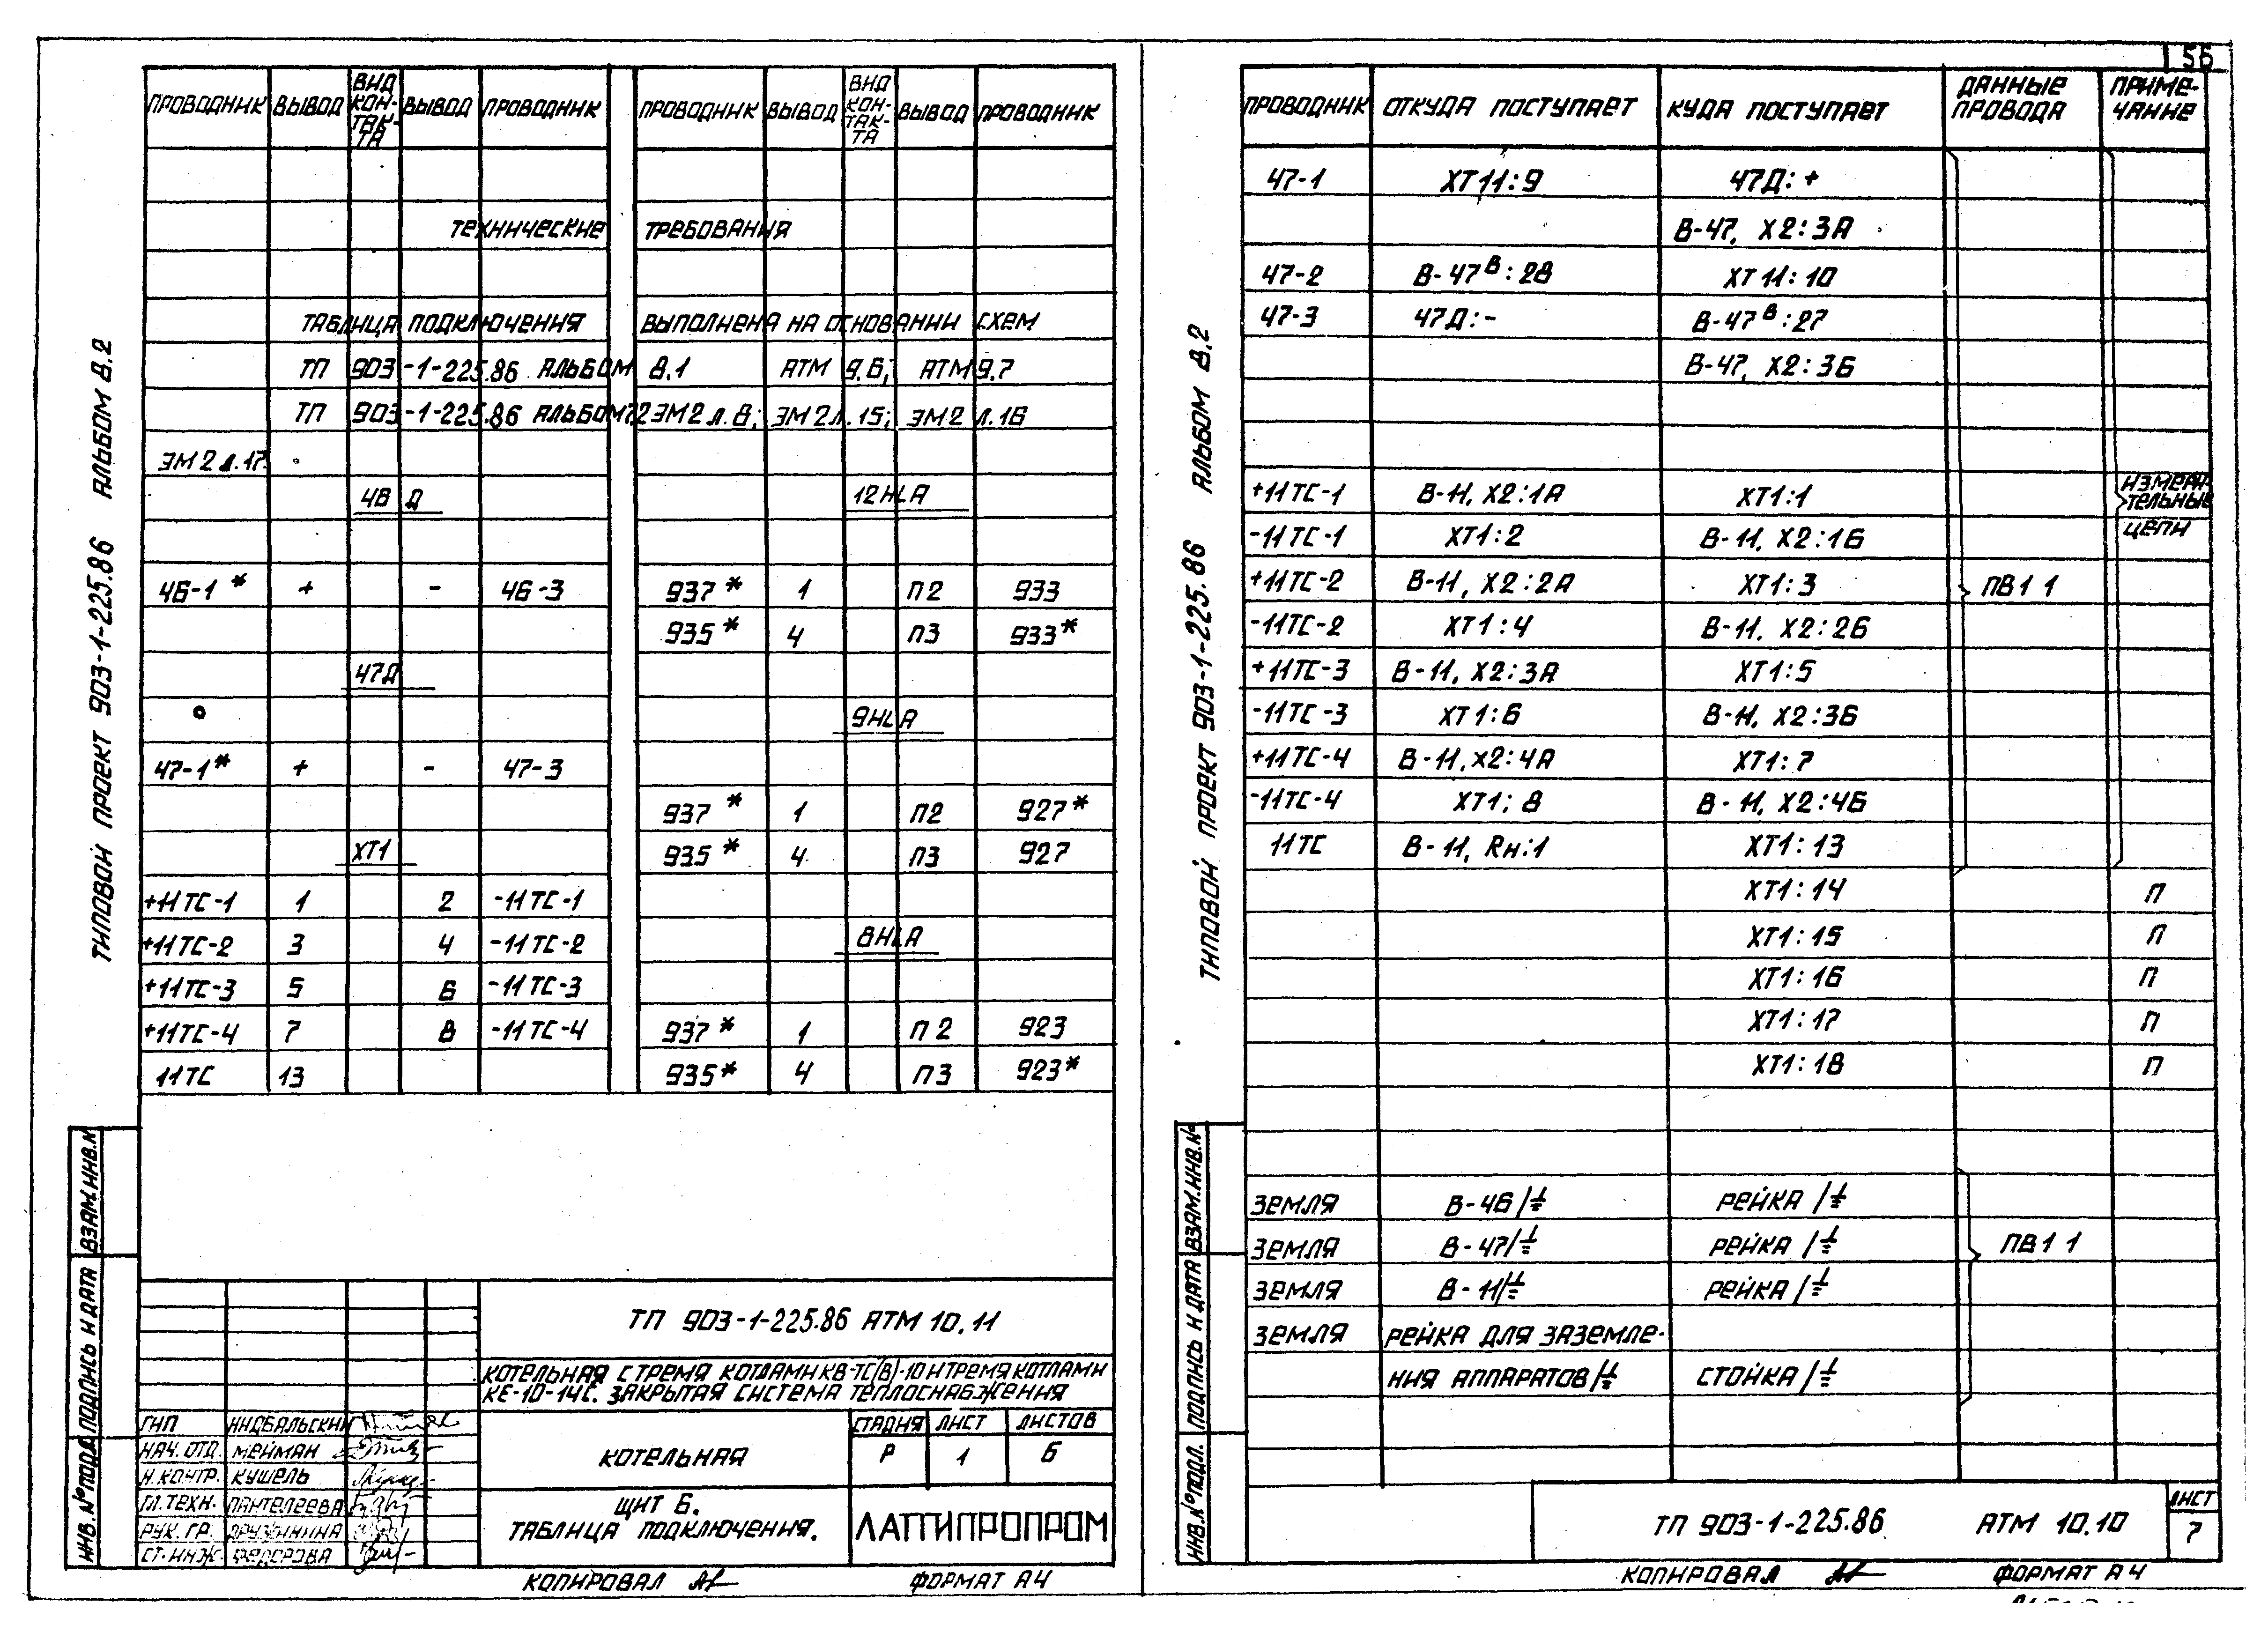 56
ПРОВОДНИК ВЫВОД ВИД КОН-ТАК-ТА ВЫВОД ПРОВОДНИК ПРОВОДНИК ВЫВОД ВИД КОН-ТАК-ТА ВЫВОД ПРОВОДНИК
ТЕХНИЧЕСКИЕ ТРЕБОВАНИЯ
ТАБЛИЦА ПОДКЛЮЧЕНИЯ ВЫПОЛНЕНА НА ОСНОВАНИИ СХЕМ
ТП 903-1-225.86 АЛЬБОМ 8.1 АТМ 9.6; АТМ 9.7
ТП 903-1-225.86 АЛЬБОМ 7.2 ЭМ2 л.8; ЭМ2 л.15; ЭМ2 л.16
ЭМ2 л.17.
4В Д 12HLA
46-1* + - 46-3 937* 1 П2 933
935* 4 П3 933*
47Д
9HLA
47-1* + - 47-3
937* 1 П2 927*
ХТ1 935* 4 П3 927
+11ТС-1 1 2 -11ТС-1
+11ТС-2 3 4 -11ТС-2 8HLA
+11ТС-3 5 6 -11ТС-3
+11ТС-4 7 8 -11ТС-4 937* 1 П2 923
11ТС 13 935* 4 П3 923*
ТИПОВОЙ ПРОЕКТ 903-1-225.86 АЛЬБОМ 8.2
ИНВ.№ПОДЛ. ПОДПИСЬ И ДАТА ВЗАМ.ИНВ.№
ТП 903-1-225.86 АТМ 10.11
КОТЕЛЬНАЯ С ТРЕМЯ КОТЛАМИ КВ-ТС(В)-10 И ТРЕМЯ КОТЛАМИ
КЕ-10-14С. ЗАКРЫТАЯ СИСТЕМА ТЕПЛОСНАБЖЕНИЯ
ГИП
НАЧ. ОТД. МЕЙМАН
Н.КОНТР. КУШЕЛЬ
ГЛ.ТЕХН. ПАНТЕЛЕЕВА
РУК. ГР. ДРУЖИНИНА
СТ.ИНЖ. ФЕДОРОВА
КОТЕЛЬНАЯ
СТАДИЯ ЛИСТ ЛИСТОВ
Р 1 6
ЩИТ 6.
ТАБЛИЦА ПОДКЛЮЧЕНИЯ.
ЛАТГИПРОПРОМ
КОПИРОВАЛ ФОРМАТ А4
ПРОВОДНИК ОТКУДА ПОСТУПАЕТ КУДА ПОСТУПАЕТ ДАННЫЕ ПРОВОДА ПРИМЕ-ЧАНИЕ
47-1 ХТ11:9 47Д:+
В-47, Х2:3А
47-2 В-47В:28 ХТ11:10
47-3 47Д:- В-47В:27
В-47, Х2:3Б
+11ТС-1 В-11, Х2:1А ХТ1:1 ИЗМЕРИ-ТЕЛЬНЫЕ
-11ТС-1 ХТ1:2 В-11, Х2:1Б ЦЕПИ
+11ТС-2 В-11, Х2:2А ХТ1:3 ПВ1 1
-11ТС-2 ХТ1:4 В-11, Х2:2Б
+11ТС-3 В-11, Х2:3А ХТ1:5
-11ТС-3 ХТ1:6 В-11, Х2:3Б
+11ТС-4 В-11, Х2:4А ХТ1:7
-11ТС-4 ХТ1:8 В-11, Х2:4Б
11ТС В-11, Rн:1 ХТ1:13
ХТ1:14 П
ХТ1:15 П
ХТ1:16 П
ХТ1:17 П
ХТ1:18 П
ЗЕМЛЯ В-46/⏚ РЕЙКА/⏚
ЗЕМЛЯ В-47/⏚ РЕЙКА/⏚ ПВ1 1
ЗЕМЛЯ В-11/⏚ РЕЙКА/⏚
ЗЕМЛЯ РЕЙКА ДЛЯ ЗАЗЕМЛЕ-
НИЯ АППАРАТОВ/⏚ СТОЙКА/⏚
ТИПОВОЙ ПРОЕКТ 903-1-225.86 АЛЬБОМ 8.2
ИНВ.№ПОДЛ. ПОДПИСЬ И ДАТА ВЗАМ.ИНВ.№
ТП 903-1-225.86 АТМ 10.10
ЛИСТ
7
КОПИРОВАЛ ФОРМАТ А4